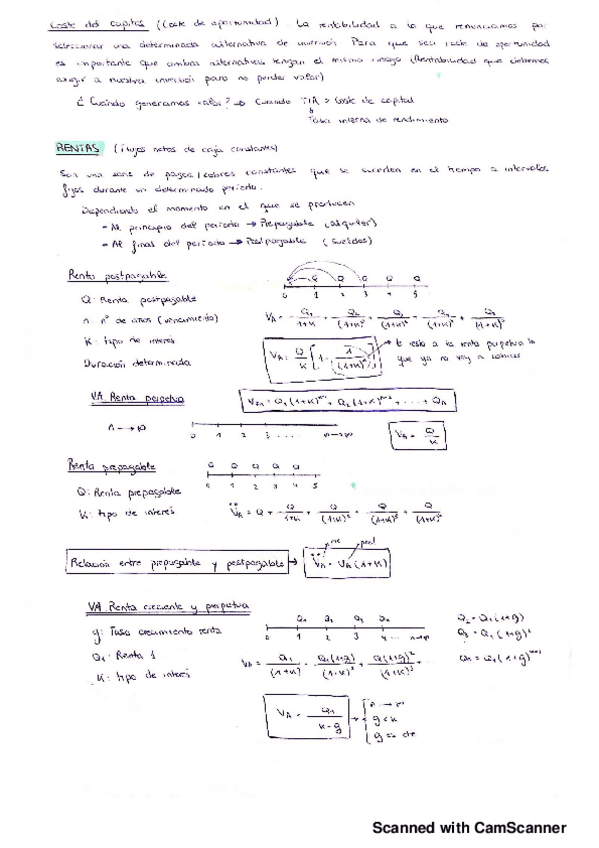 Coste del capital (Coste de oportunidad). La rentabilidad a la que renunciamos por
seleccionar una determinada alternativa de inversión. Para que sea coste de oportunidad
es importante que ambas alternativas tengan el mismo riesgo (Rentabilidad que debemos
exigir a nuestra inversión para no perder valor)
¿Cuándo generamos valor? → Cuando TIR > Coste de capital
Tasa interna de rendimiento
RENTAS (flujos netos de caja constantes)
Son una serie de pagos/cobros constantes que se suceden en el tiempo a intervalos
fijos durante un determinado periodo.
Dependiendo el momento en el que se producen
- Al principio del periodo → Prepagable (alquiler)
- Al final del periodo → Postpagable (sueldos)
Renta postpagable
Q Q Q Q Q
0 1 2 3 4 5
Q: Renta postpagable
n: nº de años (vencimiento)
K: tipo de interés
Duración determinada
le resto a la renta perpetua lo
que ya no voy a cobrar
VA Renta perpetua
n → ∞
0 1 2 3 .... n→∞
VA = Q/K
Renta prepagable
Q Q Q Q Q
0 1 2 3 4 5
Q: Renta prepagable
K: tipo de interés
Relación entre prepagable y postpagable → V̈A = VA (1+K)
VA Renta creciente y perpetua
g: Tasa crecimiento renta
Q1: Renta 1
K: tipo de interés
0 1 2 3 4 ... n→∞
Q2 = Q1 (1+g)
Q3 = Q1 (1+g)²
VA = Q1/(1+K) + Q1(1+g)/(1+K)² + Q1(1+g)²/(1+K)³ + ...
VA = Q1/(K-g)
n → ∞
g < k
g = cte
Scanned with CamScanner